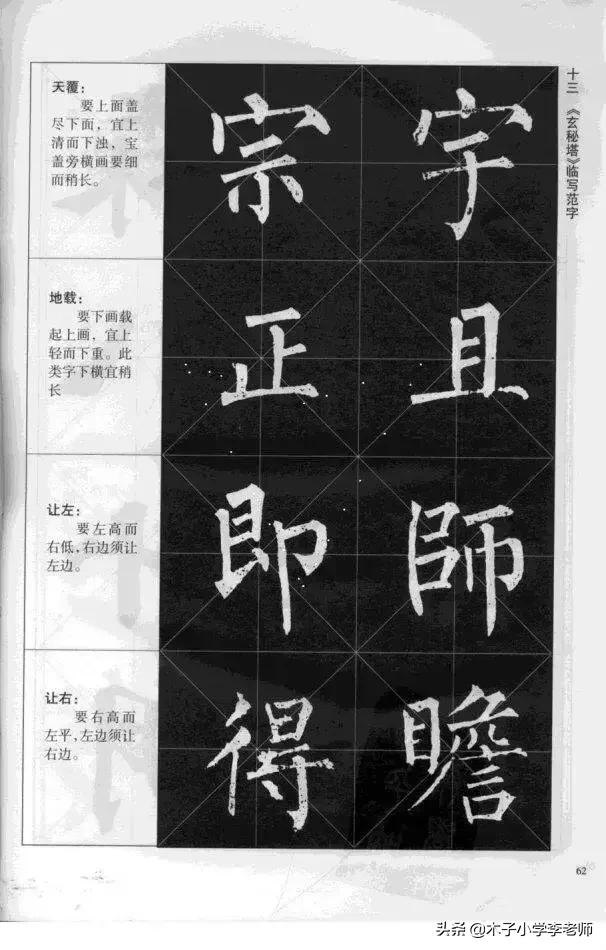 十三 《玄秘塔》临写范字
天覆：
要上面盖
尽下面，宜上
清而下浊，宝
盖旁横画要细
而稍长。
宗 宇
地载：
要下画载
起上画，宜上
轻而下重。此
类字下横宜稍
长
正 且
让左：
要左高而
右低，右边须让
左边。
即 師
让右：
要右高而
左平，左边须让
右边。
得 瞻
62
头条 @木子小学李老师